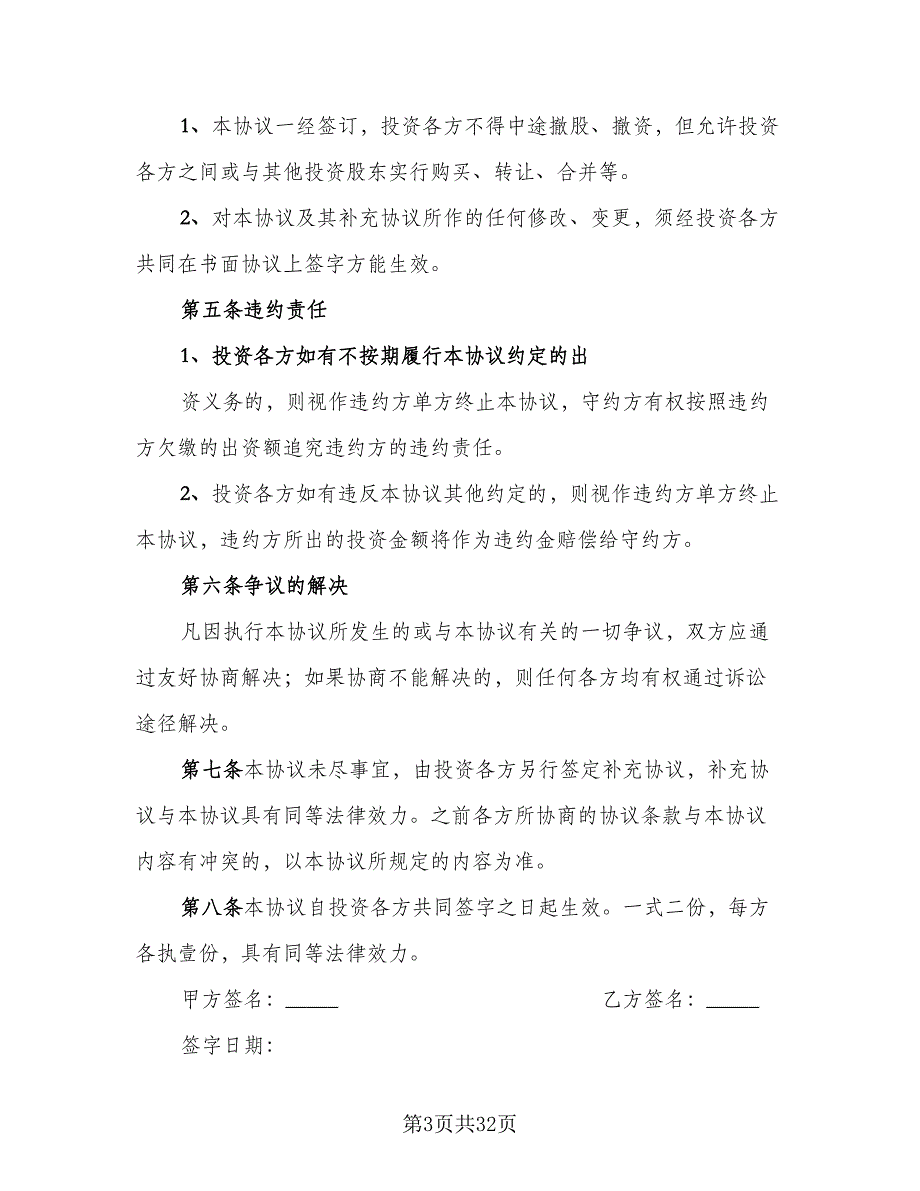 1、本协议一经签订，投资各方不得中途撤股、撤资，但允许投资
各方之间或与其他投资股东实行购买、转让、合并等。
2、对本协议及其补充协议所作的任何修改、变更，须经投资各方
共同在书面协议上签字方能生效。
第五条违约责任
1、投资各方如有不按期履行本协议约定的出
资义务的，则视作违约方单方终止本协议，守约方有权按照违约
方欠缴的出资额追究违约方的违约责任。
2、投资各方如有违反本协议其他约定的，则视作违约方单方终止
本协议，违约方所出的投资金额将作为违约金赔偿给守约方。
第六条争议的解决
凡因执行本协议所发生的或与本协议有关的一切争议，双方应通
过友好协商解决；如果协商不能解决的，则任何各方均有权通过诉讼
途径解决。
第七条本协议未尽事宜，由投资各方另行签定补充协议，补充协
议与本协议具有同等法律效力。之前各方所协商的协议条款与本协议
内容有冲突的，以本协议所规定的内容为准。
第八条本协议自投资各方共同签字之日起生效。一式二份，每方
各执壹份，具有同等法律效力。
甲方签名：_____ 乙方签名：_____
签字日期：
第3页共32页